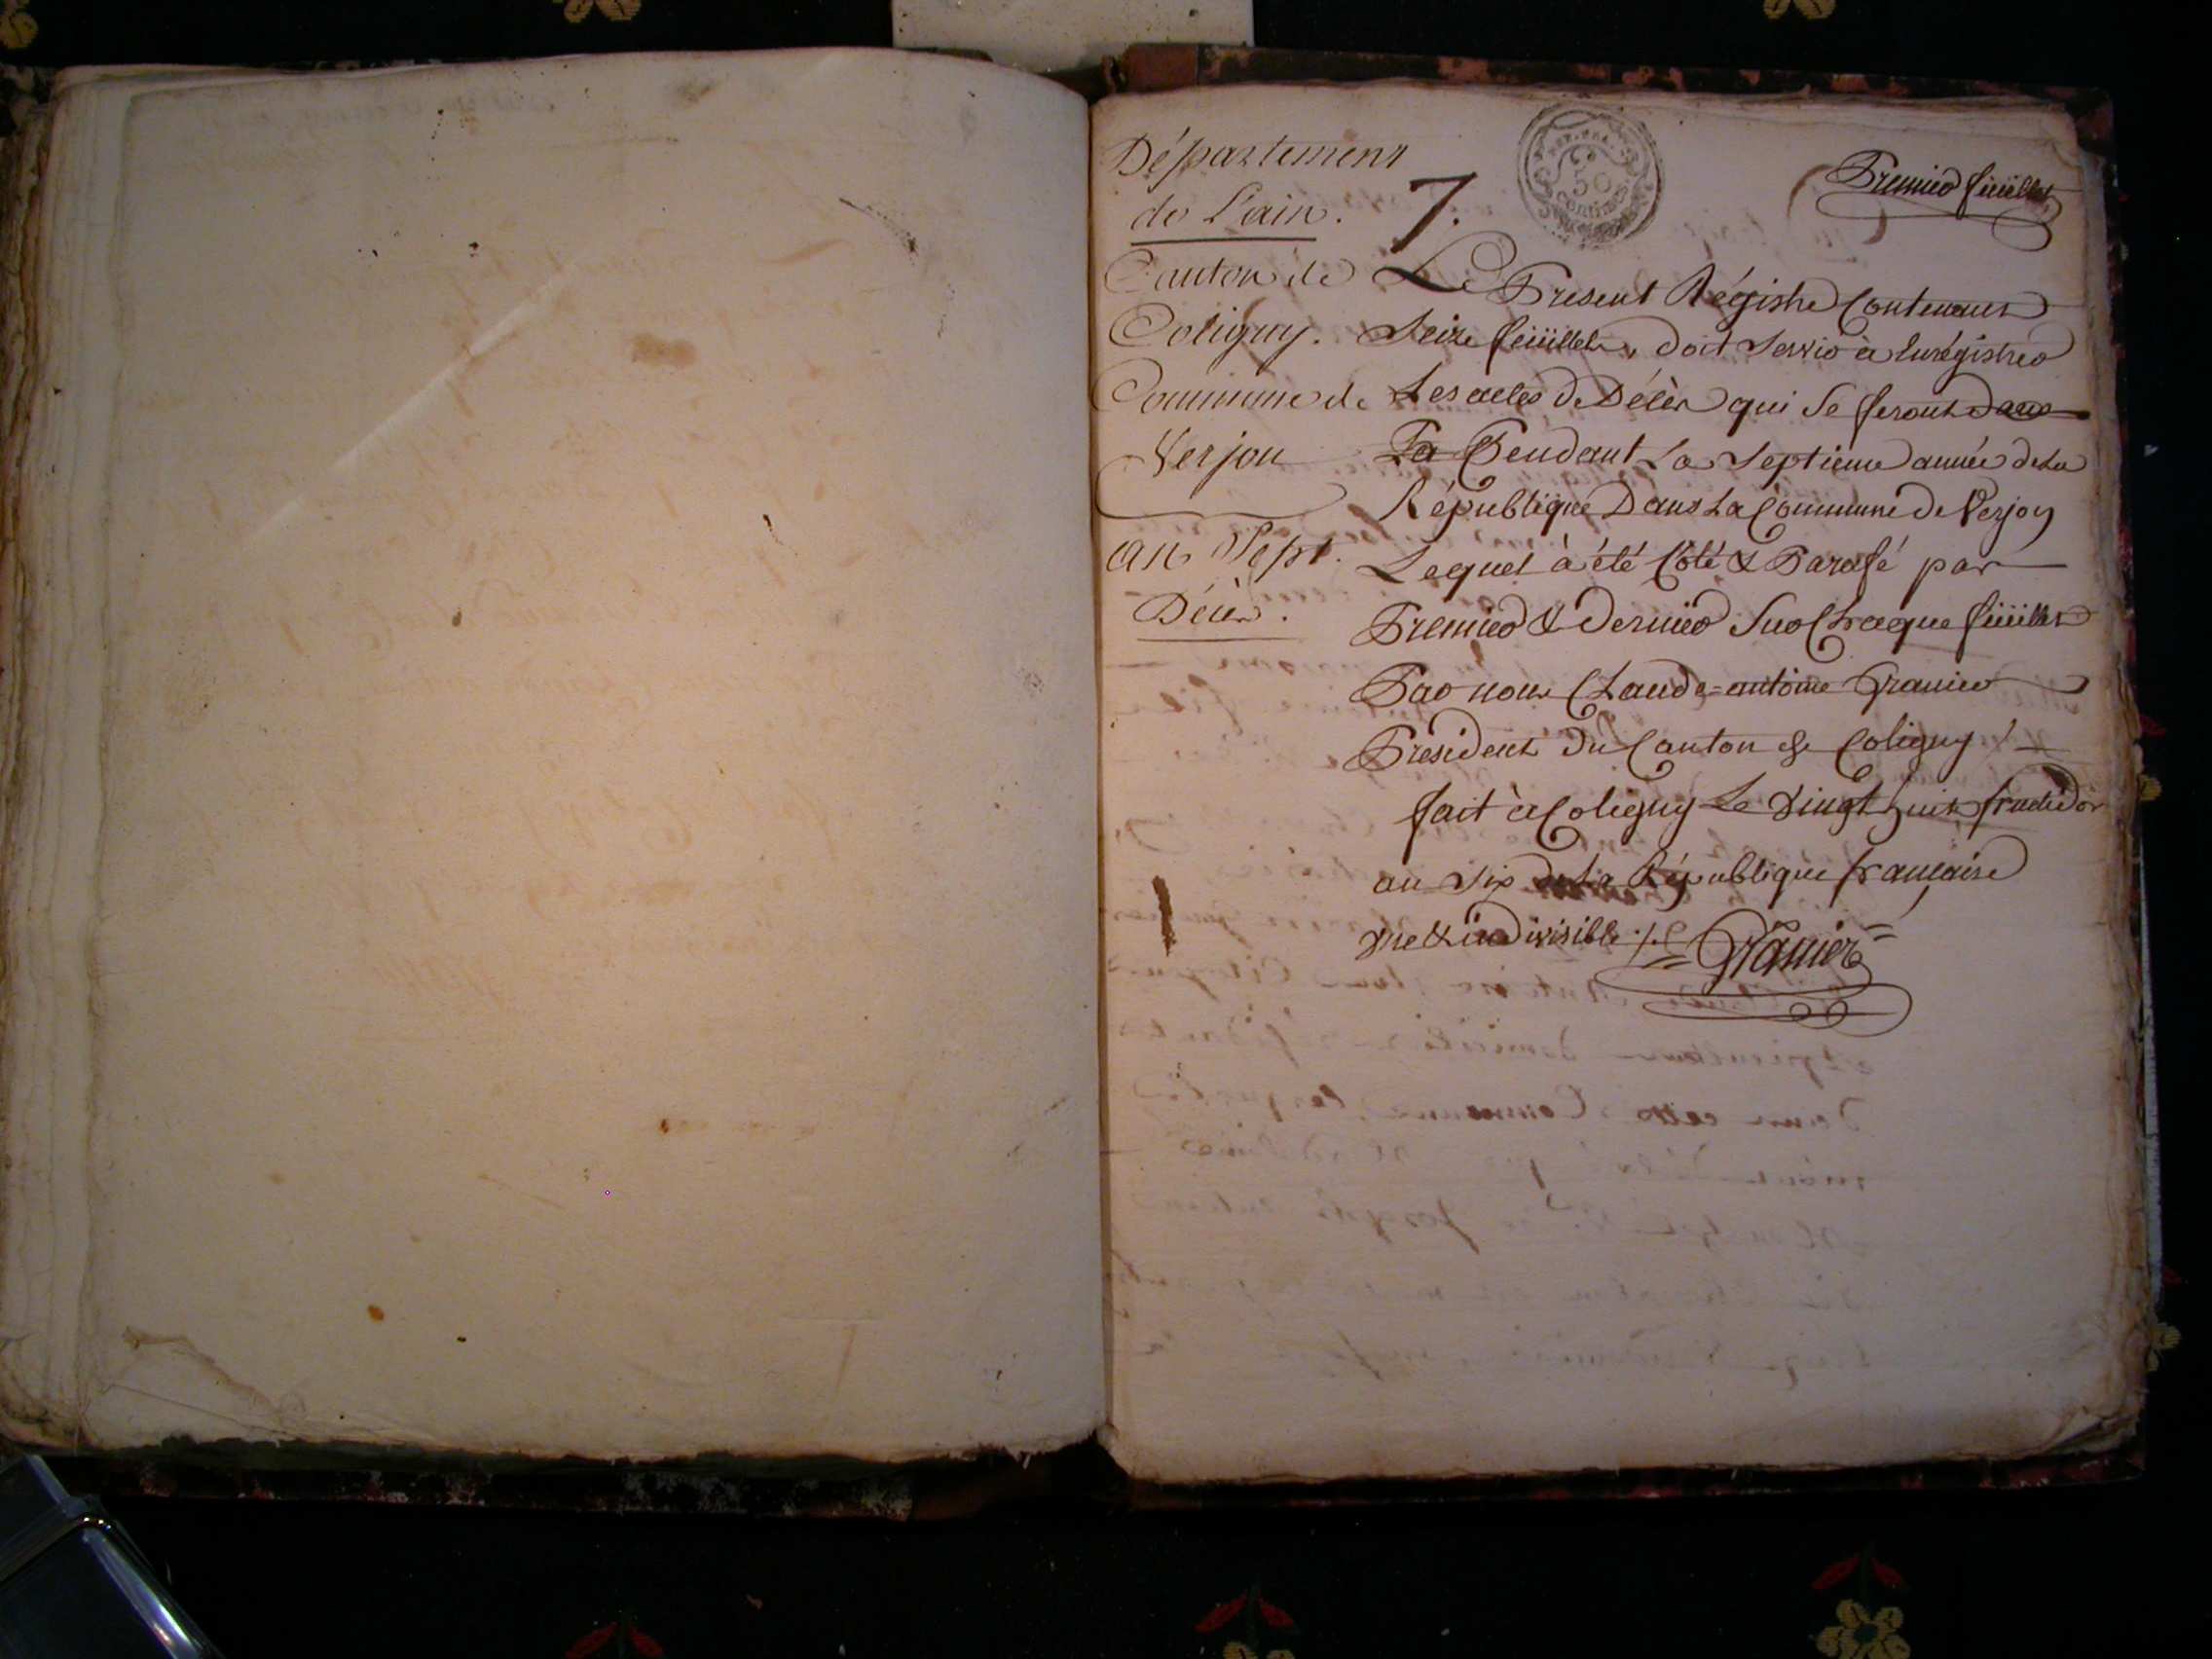 Département
de L'ain.
Canton de
Coligny.
Commune de
Verjon
an Sept.
Décès.
7.
50
centimes
Premier feüillet
Le Present Régistre Contenant
Seize feüillets, doit Servir à Enrégistrer
Les actes de Décès qui Se feront dans
La Pendant La Septieme année de La
République Dans La Commune de Verjon
Lequel à été Côté & Parafé par
Premier & Dernier Sur Chaque feüillet
Par nous Claude-antoine Granier
President du Canton de Coligny
fait à Coligny Le Vingt huit fructidor
an Six de La République francaise
une & indivisible ./.
Granier